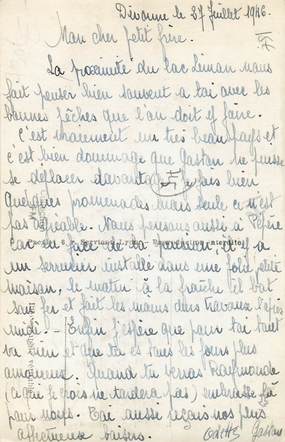 Divonne le 27 juillet 1946.
Mon cher petit frère.
La proximité du lac Léman nous
fait penser bien souvent à toi avec les
bonnes pêches que l'on doit y faire.
C'est vraiment un très beau pays et
c'est bien dommage que Gaston ne puisse
se déplacer davantage. Je fais bien
quelques promenades mais seule, ce n'est
pas agréable. Nous pensons aussi à Pépère
car en face de la pension, il y a
un serrurier installé dans une jolie petite
maison, le matin à la fraîche il bat
son fer et fait les menus travaux l'après
midi. - Enfin j'espère que pour toi tout
va bien et que tu es tous les jours plus
amoureux. Quand tu verras Raymonde
(a que je crois ne tardera pas) embrasse la
pour nous. Toi aussi reçois nos plus
affectueux baisers.
Odette Gaston